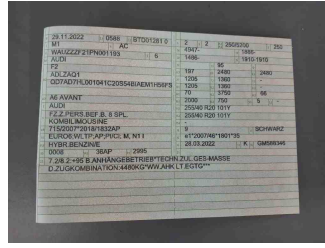 29.11.2022 0588 BTG01281 0 2 2 250/5200 250
M1 AC 4947- 1886-
WAUZZZF21PN001193 5 1486- 1910-1910
AUDI 95
F2 197 2480 2480
ADLZAQ1 1205 1360
QD7AD7HL001041C20SS4BIAEM1H56FS 1205 1360
70 3750 86
A6 AVANT 2000 750 9
AUDI 255/40 R20 101Y
FZ.Z.PERS.BEF.B. 8 SPL. 255/40 R20 101Y
KOMBILIMOUSINE
715/2007*2018/1832AP 9 SCHWARZ
EURO6;WLTP;AP;PI/CI; M, N1 I e1*2007/46*1801*35
HYBR.BENZIN/E 28.03.2022 K GM566346
0008 36AP 2995
7.2/8.2:+95 B.ANHÄNGEBETRIEB*TECHN.ZUL.GES-MASSE
D.ZUGKOMBINATION:4480KG*WW.AHK LT.EGTG***